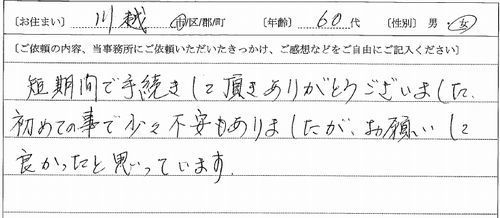 ［お住まい］ 川越 市/区/郡/町 ［年齢］ 60代 ［性別］ 男・女
［ご依頼の内容、当事務所にご依頼いただいたきっかけ、ご感想などをご自由にご記入ください］
短期間で手続きして頂きありがとうございました。
初めての事で少々不安もありましたが、お願いして
良かったと思っています。